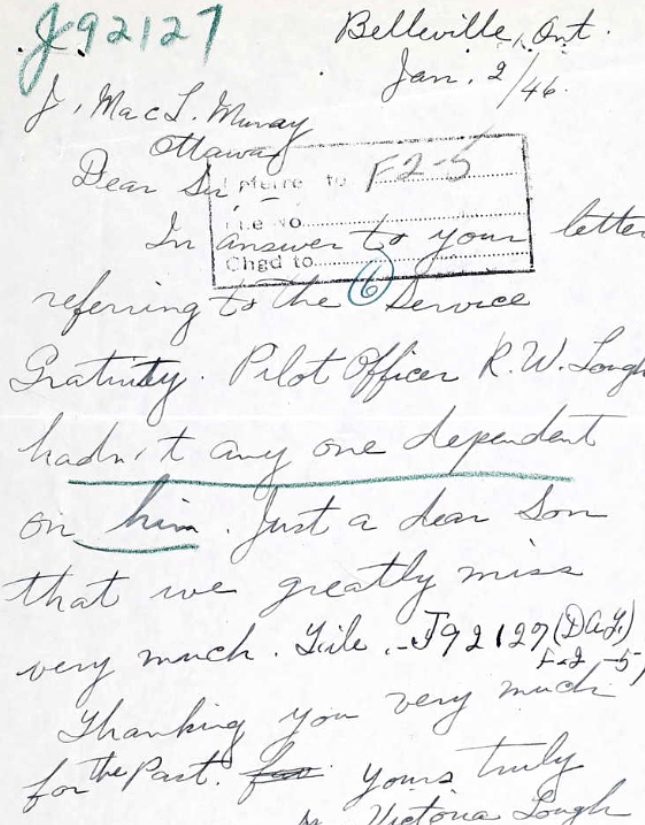 J92127
Belleville, Ont.
Jan. 2/46.
J. MacL. Murray
Ottawa
Dear Sir,
Referre to F2-5
File No.
Chgd to
In answer to your letter
referring to the 6 Service
Gratinity. Pilot Officer R.W. Lough
hadn't any one dependent
on him. Just a dear Son
that we greatly miss
very much. File.-J92127 (DAF)
F-2-5)
Thanking you very much
for the Past. for yours truly
Victoria Lough